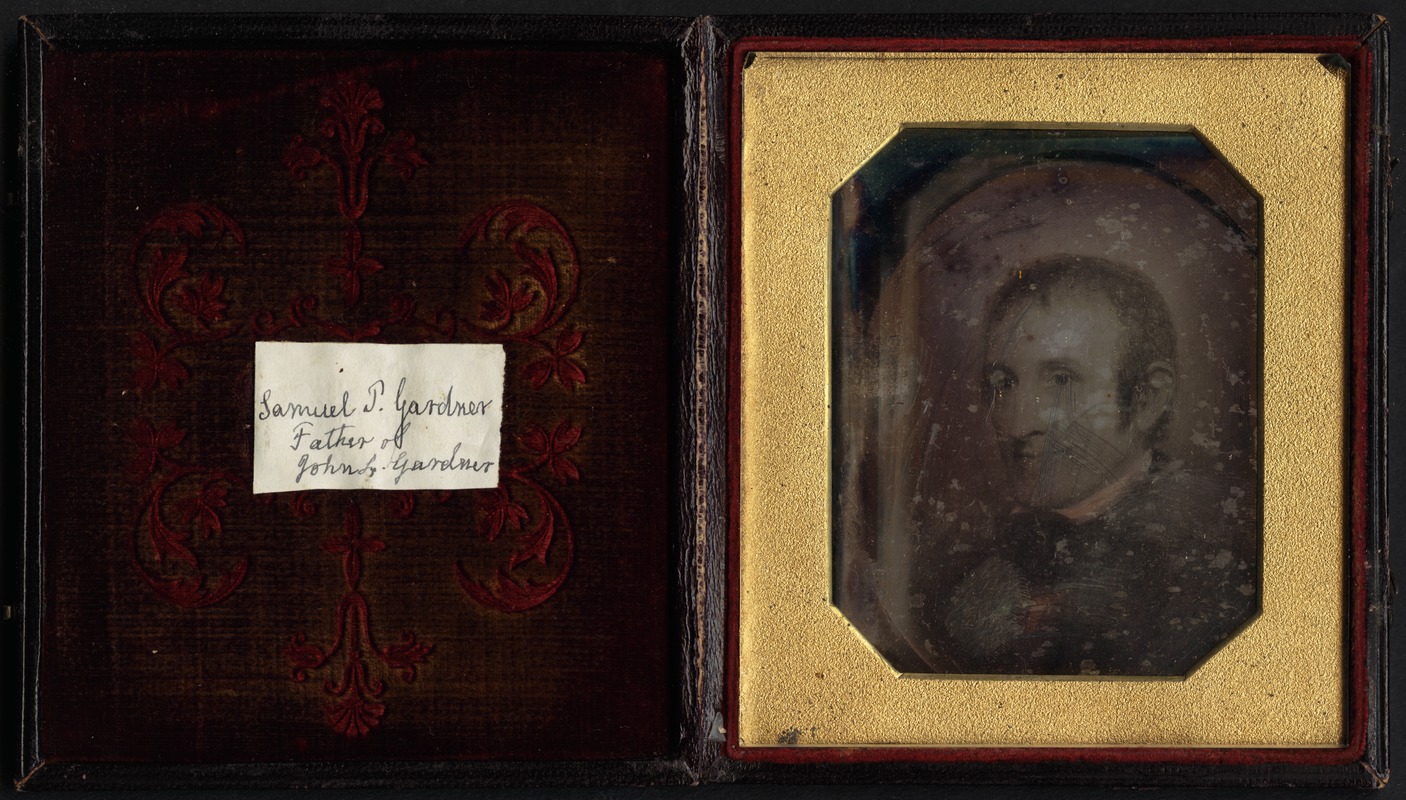 Samuel P. Gardner
Father of
John L. Gardner